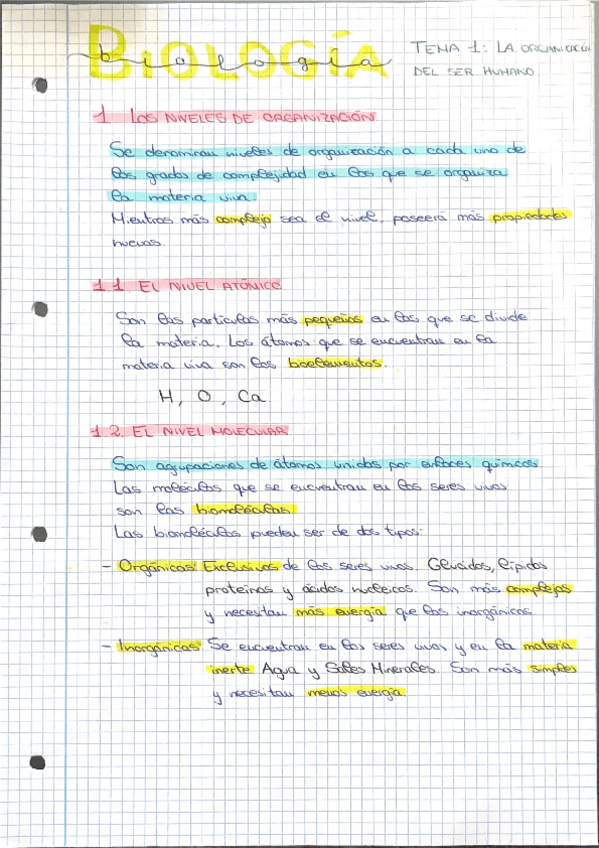 BIOLOGÍA
biología
TEMA 1: LA ORGANIZACIÓN
DEL SER HUMANO
1. LOS NIVELES DE ORGANIZACIÓN
Se denominan niveles de organización a cada uno de
los grados de complejidad en los que se organiza
la materia viva.
Mientras más complejo sea el nivel, poseerá más propiedades
nuevas.
1.1. EL NIVEL ATÓMICO
Son las partículas más pequeñas en las que se divide
la materia. Los átomos que se encuentran en la
materia viva son los bioelementos.
H, O, Ca.
1.2. EL NIVEL MOLECULAR
Son agrupaciones de átomos unidos por enlaces químicos
Las moléculas que se encuentran en los seres vivos
son las biomoléculas.
Las biomoléculas pueden ser de dos tipos:
- Orgánicas: Exclusivas de los seres vivos. Glúcidos, lípidos
proteínas y ácidos nucleicos. Son más complejas
y necesitan más energía que las inorgánicas.
- Inorgánicas: Se encuentran en los seres vivos y en la materia
inerte Agua y Sales Minerales. Son más simples
y necesitan menos energía